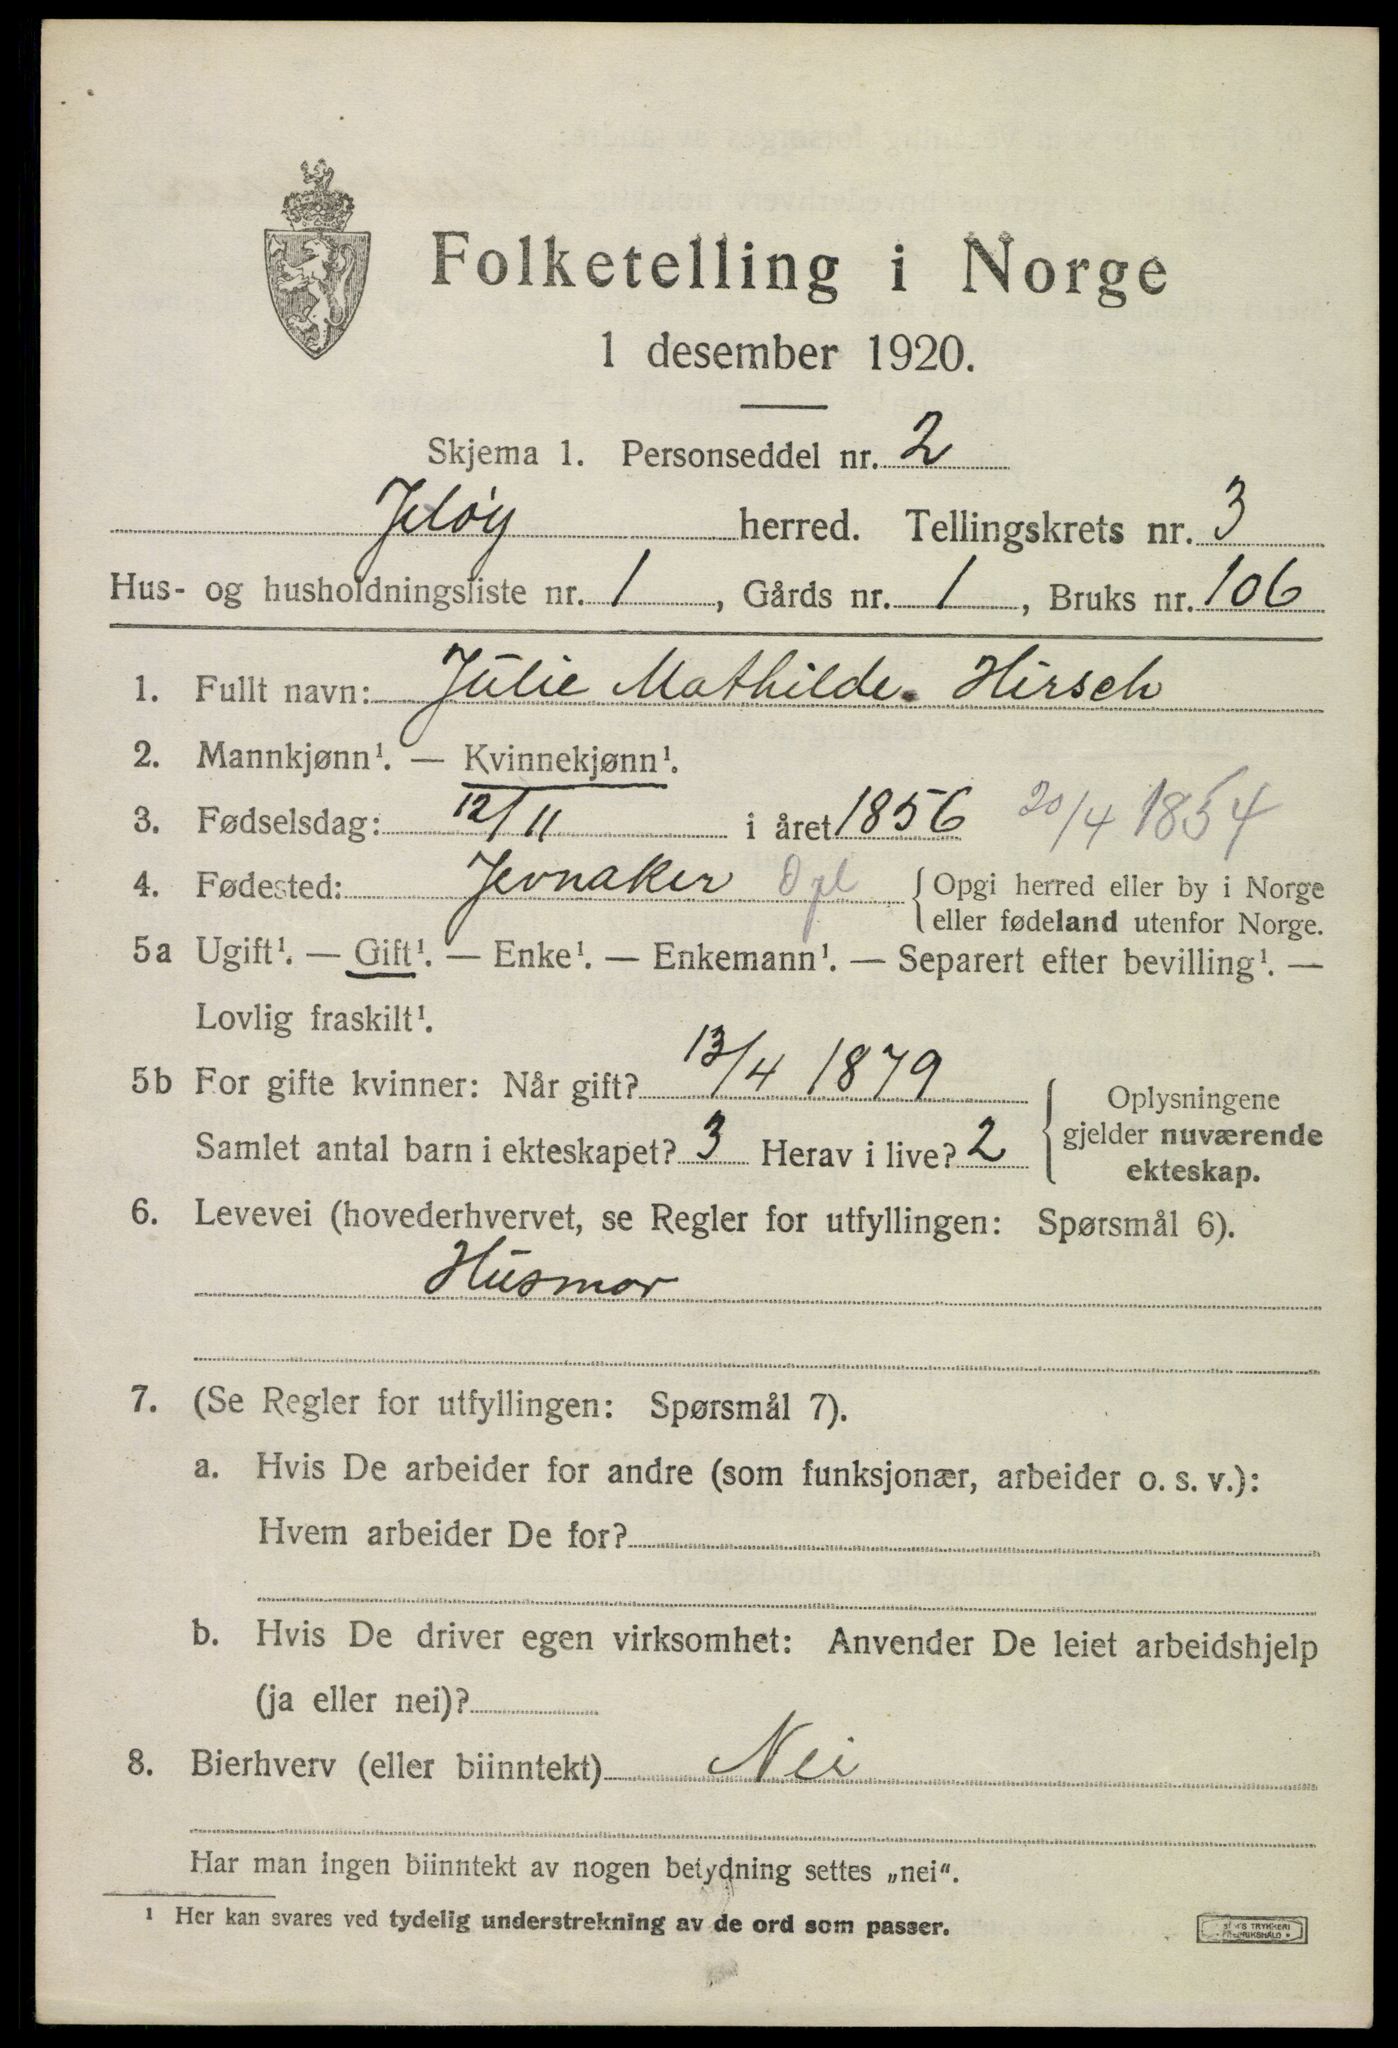 Folketelling i Norge
1 desember 1920.
Skjema 1. Personseddel nr. 2
Jeløy herred. Tellingskrets nr. 3
Hus- og husholdningsliste nr. 1, Gårds nr. 1, Bruks nr. 106
1. Fullt navn: Julie Mathilde Hirsch
2. Mannkjønn¹. — Kvinnekjønn¹.
3. Fødselsdag: 12/11 i året 1856 20/4 1854
4. Fødested: Jevnaker Opl { Opgi herred eller by i Norge
eller fødeland utenfor Norge.
5a Ugift¹. — Gift¹. — Enke¹. — Enkemann¹. — Separert efter bevilling¹. —
Lovlig fraskilt¹.
5b For gifte kvinner: Når gift? 13/4 1879
Samlet antal barn i ekteskapet? 3 Herav i live? 2
{ Oplysningene
gjelder nuværende
ekteskap.
6. Levevei (hovederhvervet, se Regler for utfyllingen: Spørsmål 6).
Husmor
7. (Se Regler for utfyllingen: Spørsmål 7).
a. Hvis De arbeider for andre (som funksjonær, arbeider o. s. v.):
Hvem arbeider De for?
b. Hvis De driver egen virksomhet: Anvender De leiet arbeidshjelp
(ja eller nei)?
8. Bierhverv (eller biinntekt) Nei
Har man ingen biinntekt av nogen betydning settes „nei“.
¹ Her kan svares ved tydelig understrekning av de ord som passer.
TRYKKERI
FREDRIKSHALD